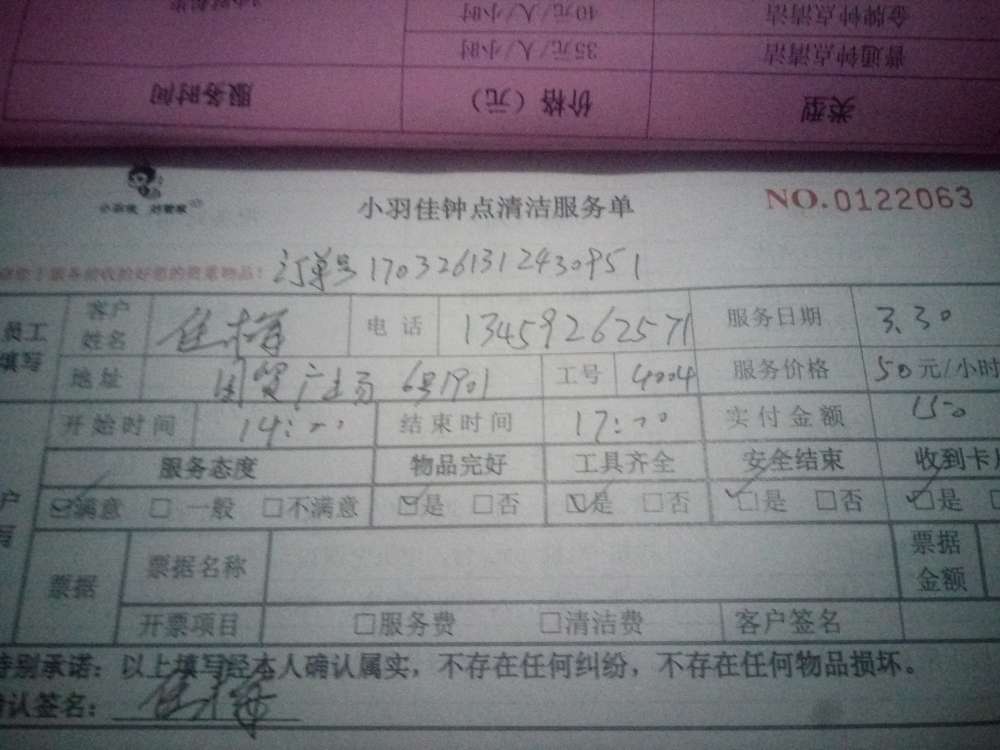 金牌钟点清洁 40元/人/小时
普通钟点清洁 35元/人/小时
类型 价格（元） 服务时间
小羽佳 好管家
小羽佳钟点清洁服务单 NO.0122063
订单号 1703261312430951
员工填写 客户姓名 电话 13459262571 服务日期 3.30
地址 国贸广场 6号1901 工号 4004 服务价格 50元/小时
开始时间 14:00 结束时间 17:00 实付金额 150
服务态度 物品完好 工具齐全 安全结束 收到卡
☑满意 □一般 □不满意 ☑是 □否 ☑是 □否 ☑是 □否 ☑是
票据 票据名称 票据金额
开票项目 □服务费 □清洁费 客户签名
特别承诺：以上填写经本人确认属实，不存在任何纠纷，不存在任何物品损坏。
确认签名：